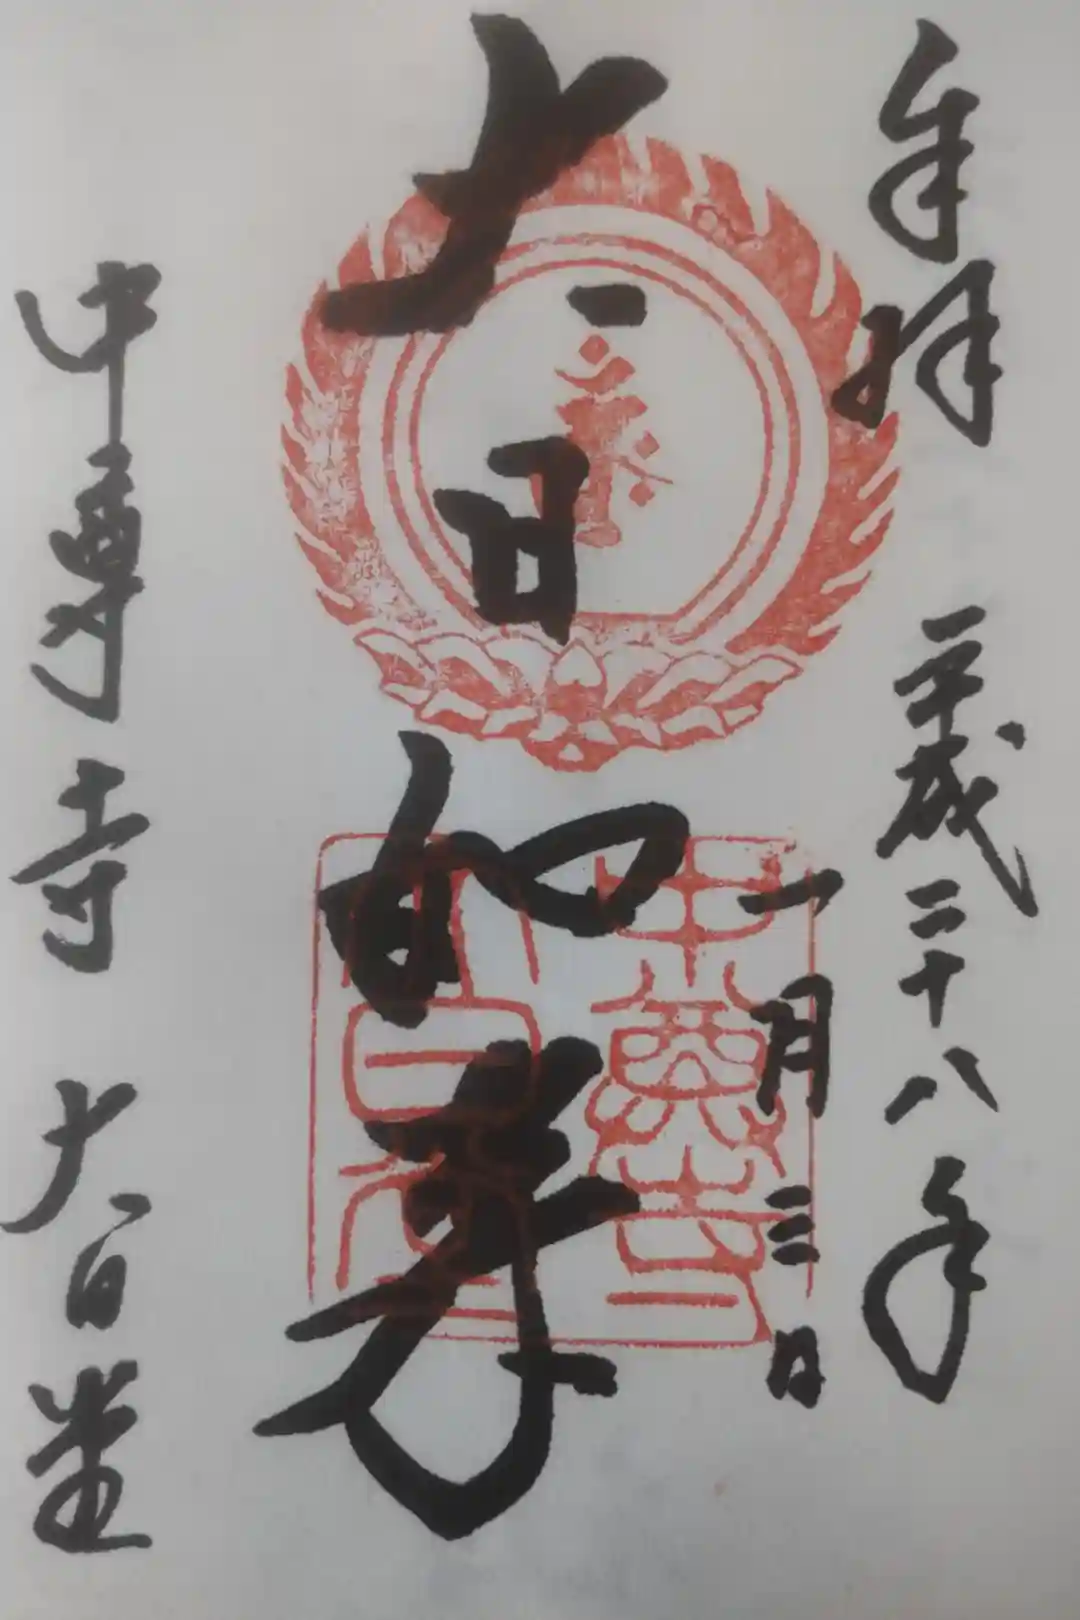 奉拝 平成二十八年
一月三日
大日如来
中尊寺 大日堂
中尊寺
大日堂